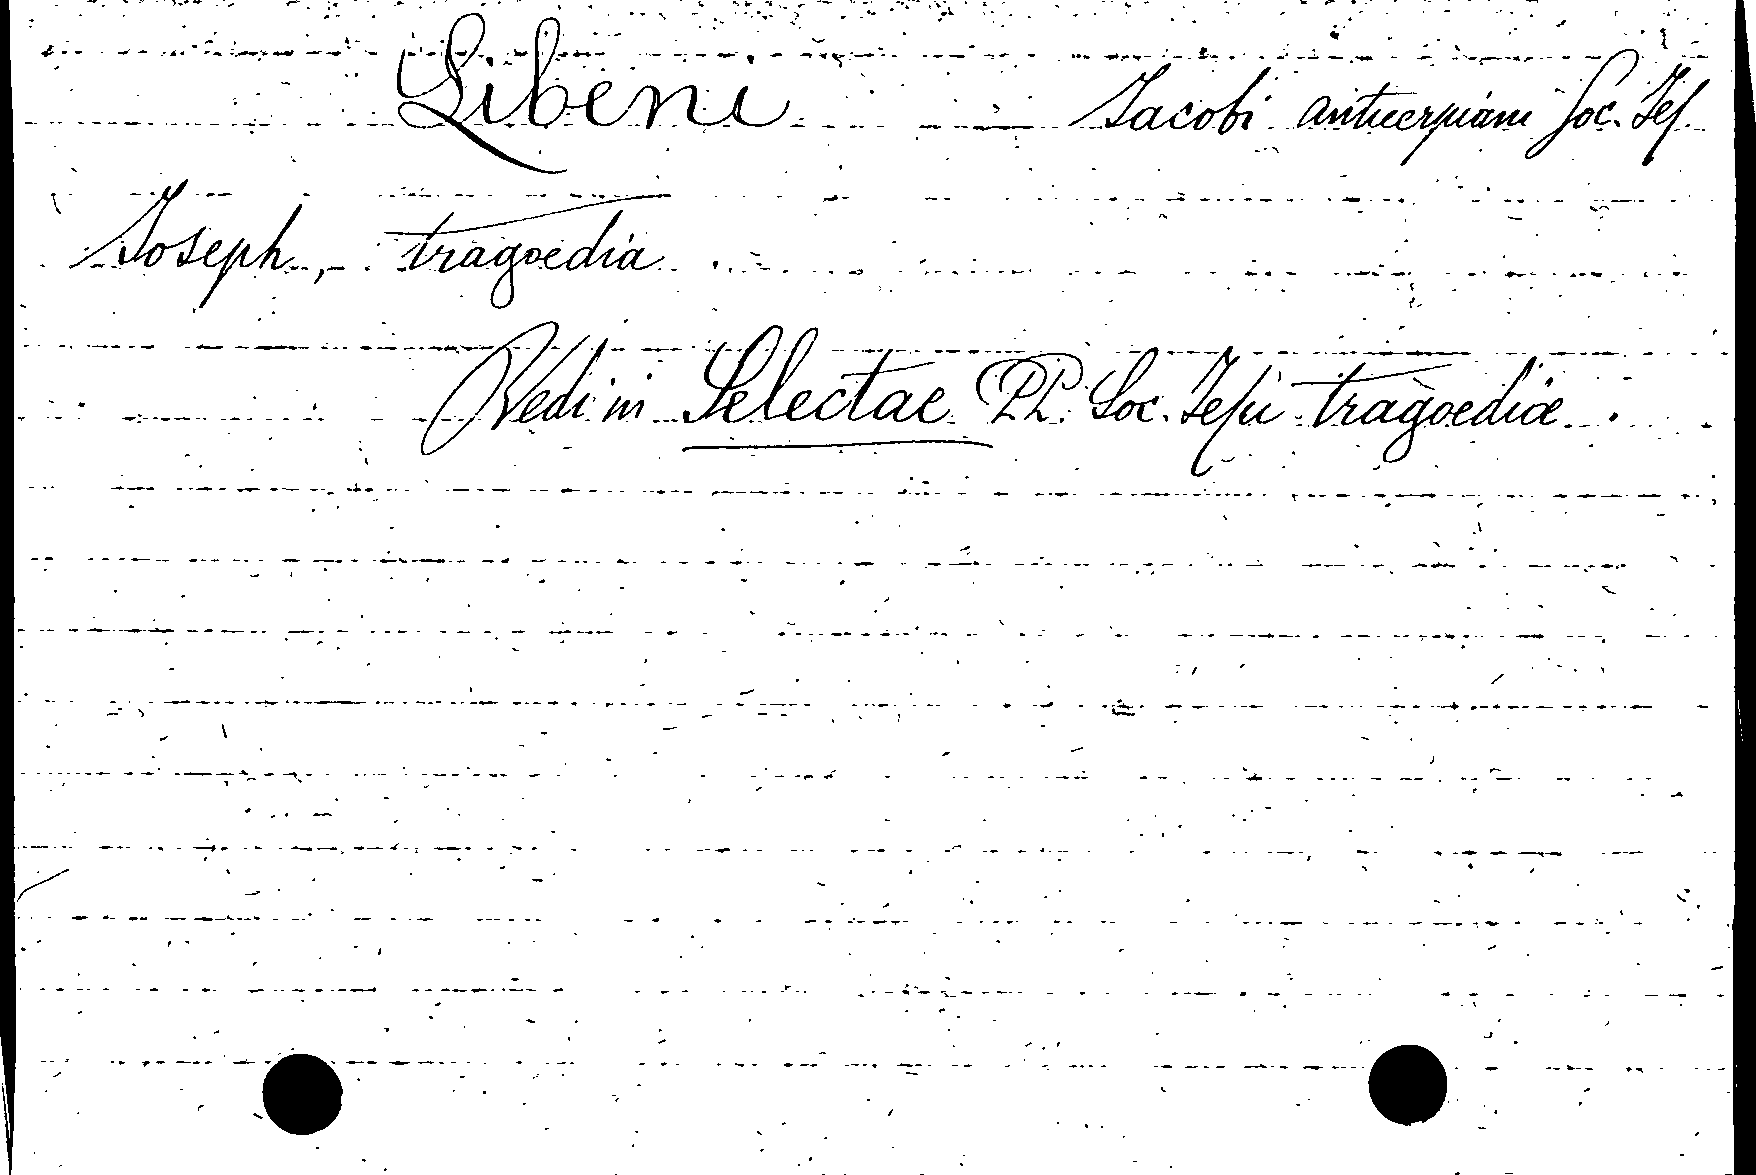 Libeni — Jacobi antuerpiani Soc. Jes.
Joseph, tragoedia
Vedi in Selectae PP. Soc. Jesu tragoediæ.